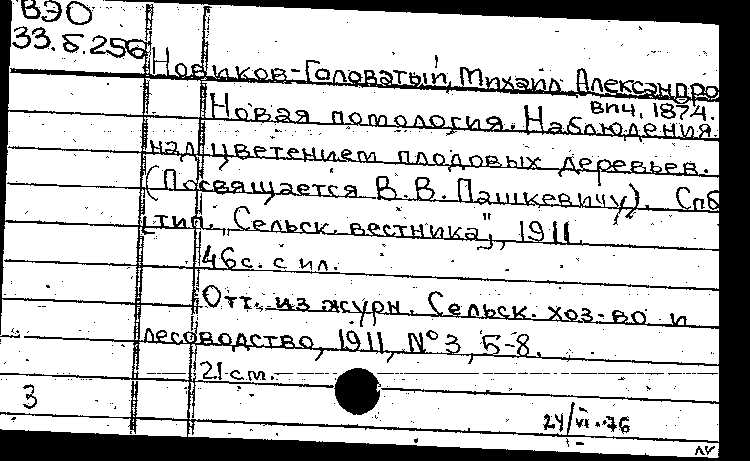 ВЭО
33.б.256
Новиков-Головатый, Михаил Александро
вич, 1874.
Новая помология. Наблюдения
над цветением плодовых деревьев.
(Посвящается В.В. Пашкевичу). Спб
[тип. „Сельск. вестника"], 1911.
46с. с ил.
Отт. из журн. Сельск. хоз-во и
лесоводство, 1911, №3, 5-8.
21 см.
3
24/VI-76